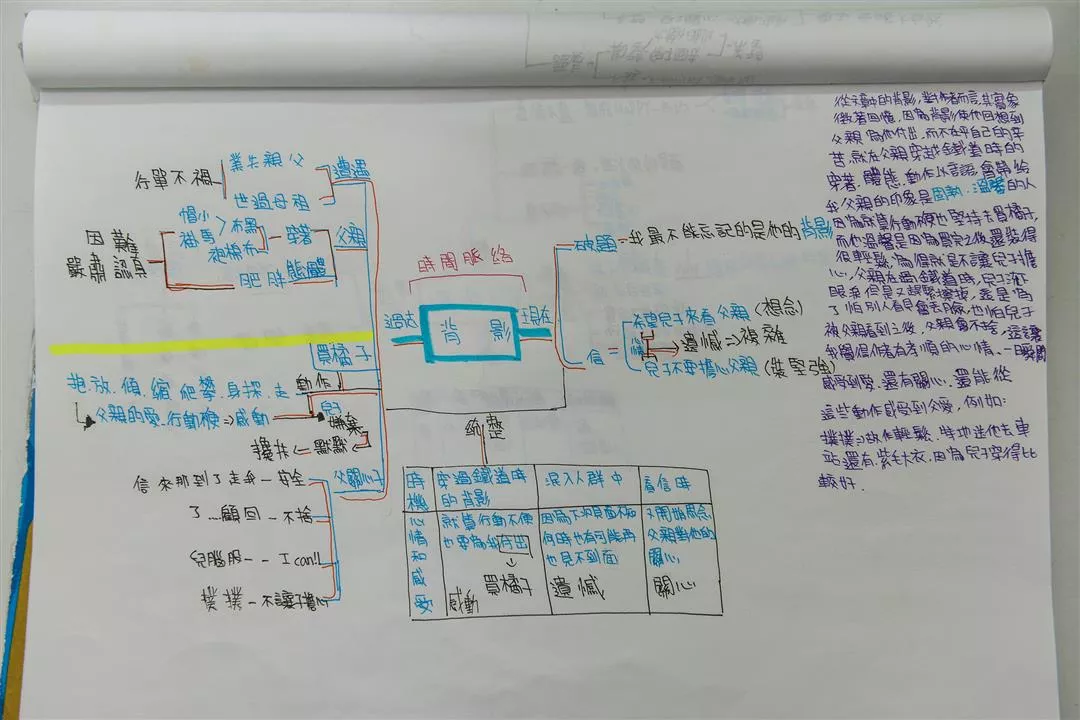 時間脈絡
過去
背影
現在
遭遇
業失親父
世過母祖
行單不禍
父親
穿著
帽小
褂馬
布黑
袍棉布
肥胖
態體
嚴肅 認真
買橘子
動作
拖、放、傾、縮、爬、攀、身探、走
父親的愛、行動硬⇒感動
兒子
嫌棄
默默
父關心子
信來那到了走我-安全
了...顧回-不捨
I can!!
撲撲-不讓子擔心
破題-我最不能忘記的是他的背影
信=
心情
希望兒子來看父親(想念)
遺憾⇒複雜
兒子不要擔心父親(裝堅強)
統整
時機
穿過鐵道時的背影
混入人群中
看信時
心情和感受
就算行動不便
也要為我付出
買橘子
感動
因為下次見面不知
何時也有可能再
也見不到面
遺憾
又開始思念
父親對他的
關心
關心
從文章中的背影，對作者而言，其實象
徵著回憶，因為背影使他回想到
父親為他付出，而不在乎自己的辛
苦，就在父親穿越鐵道時的
穿著、體態、動作以及言語，會帶給
我父親的印象是固執、溫馨的人
因為就算行動不便也堅持去買橘子，
而他溫馨是因為買完之後，還裝得
很輕鬆，為得就是不讓兒子擔
心，父親在過鐵道時，兒子流下
眼淚但是又趕緊擦拭，義是為
了怕別人看見會丟臉，也怕兒子
被父親看到之後，父親會不捨，這讓
我覺得作者有孝順的心情、一瞬間
感受到愛、還有關心、還能從
這些動作感受到父愛，例如：
撲撲⇒故作輕鬆、特地送他去車
站還有，紫大衣，因為兒子穿得比
較好。